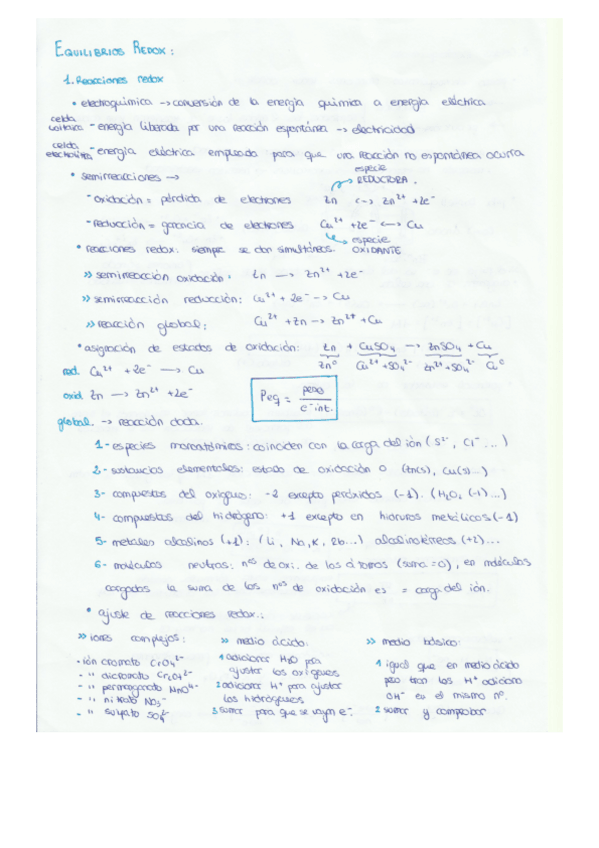 EQUILIBRIOS REDOX:
1. Reacciones redox
• electroquímica -> conversión de la energía química a energía eléctrica
celda voltaica - energía liberada por una reacción espontánea -> electricidad
celda electrolítica - energía eléctrica empleada para que una reacción no espontánea ocurra
• semirreacciones ->
especie REDUCTORA.
- oxidación = pérdida de electrones Zn <-> Zn²⁺ + 2e⁻
- reducción = ganancia de electrones Cu²⁺ + 2e⁻ <-> Cu
especie OXIDANTE
• reacciones redox: siempre se dan simultáneas.
>> semirreacción oxidación: Zn -> Zn²⁺ + 2e⁻
>> semirreacción reducción: Cu²⁺ + 2e⁻ -> Cu
>> reacción global: Cu²⁺ + Zn -> Zn²⁺ + Cu
• asignación de estados de oxidación: Zn + CuSO₄ -> ZnSO₄ + Cu
Zn⁰ Cu²⁺+SO₄²⁻ Zn²⁺+SO₄²⁻ Cu⁰
red. Cu²⁺ + 2e⁻ -> Cu
oxid. Zn -> Zn²⁺ + 2e⁻
Peq = peso / e⁻ int.
global. -> reacción dada.
1- especies monoatómicas: coinciden con la carga del ión (S²⁻, Cl⁻...)
2- sustancias elementales: estado de oxidación 0 (Zn(s), Cu(s)...)
3- compuestos del oxígeno: -2 excepto peróxidos (-1). (H₂O₂ (-1)...)
4- compuestos del hidrógeno: +1 excepto en hidruros metálicos (-1)
5- metales alcalinos (+1): (Li, Na, K, Rb...) alcalinotérreos (+2)...
6- moléculas neutras: nᵒˢ de oxi. de los átomos (suma = 0), en moléculas
cargadas la suma de los nᵒˢ de oxidación es = carga del ión.
• ajuste de reacciones redox.:
>> iones complejos:
- ión cromato CrO₄²⁻
- " dicromato Cr₂O₇²⁻
- " permanganato MnO₄⁻
- " nitrato NO₃⁻
- " sulfato SO₄²⁻
>> medio ácido:
1 adicionar H₂O para
ajustar los oxígenos
2 adicionar H⁺ para ajustar
los hidrógenos
3 sumar para que se vayan e⁻.
>> medio básico:
1 igual que en medio ácido
pero tran los H⁺ adiciono
OH⁻ en el mismo nº.
2 sumar y comprobar